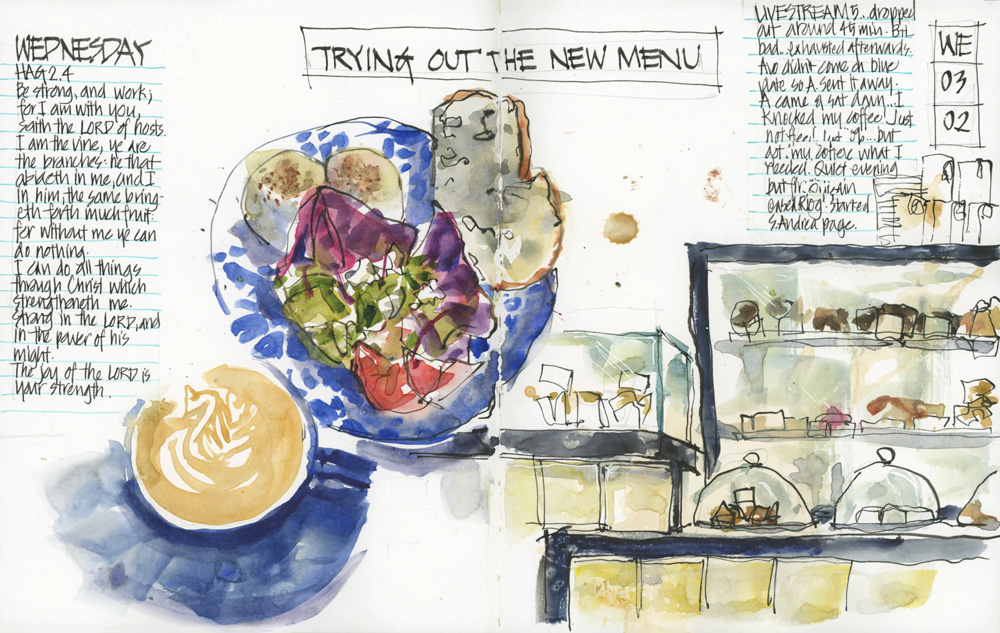 WEDNESDAY
HAG 2.4
Be strong, and work;
for I am with you,
saith the LORD of hosts.
I am the vine, ye are
the branches: he that
abideth in me, and I
in him, the same bring-
eth forth much fruit
for without me ye can
do nothing.
I can do all things
through Christ which
strengtheneth me.
strong in the LORD, and
in the power of his
might.
The joy of the LORD is
your strength.
TRYING OUT THE NEW MENU
LIVESTREAM 5.. dropped
out around 45 min. Bit
bad.. exhausted afterwards.
Avo didn't come on blue
plate so A sent it away.
A came & sat down... I
knocked my coffee! Just
not
but
got my coffee what I
needed. Quiet evening
but
Blog. Started
S.Andrea page.
WE
03
02